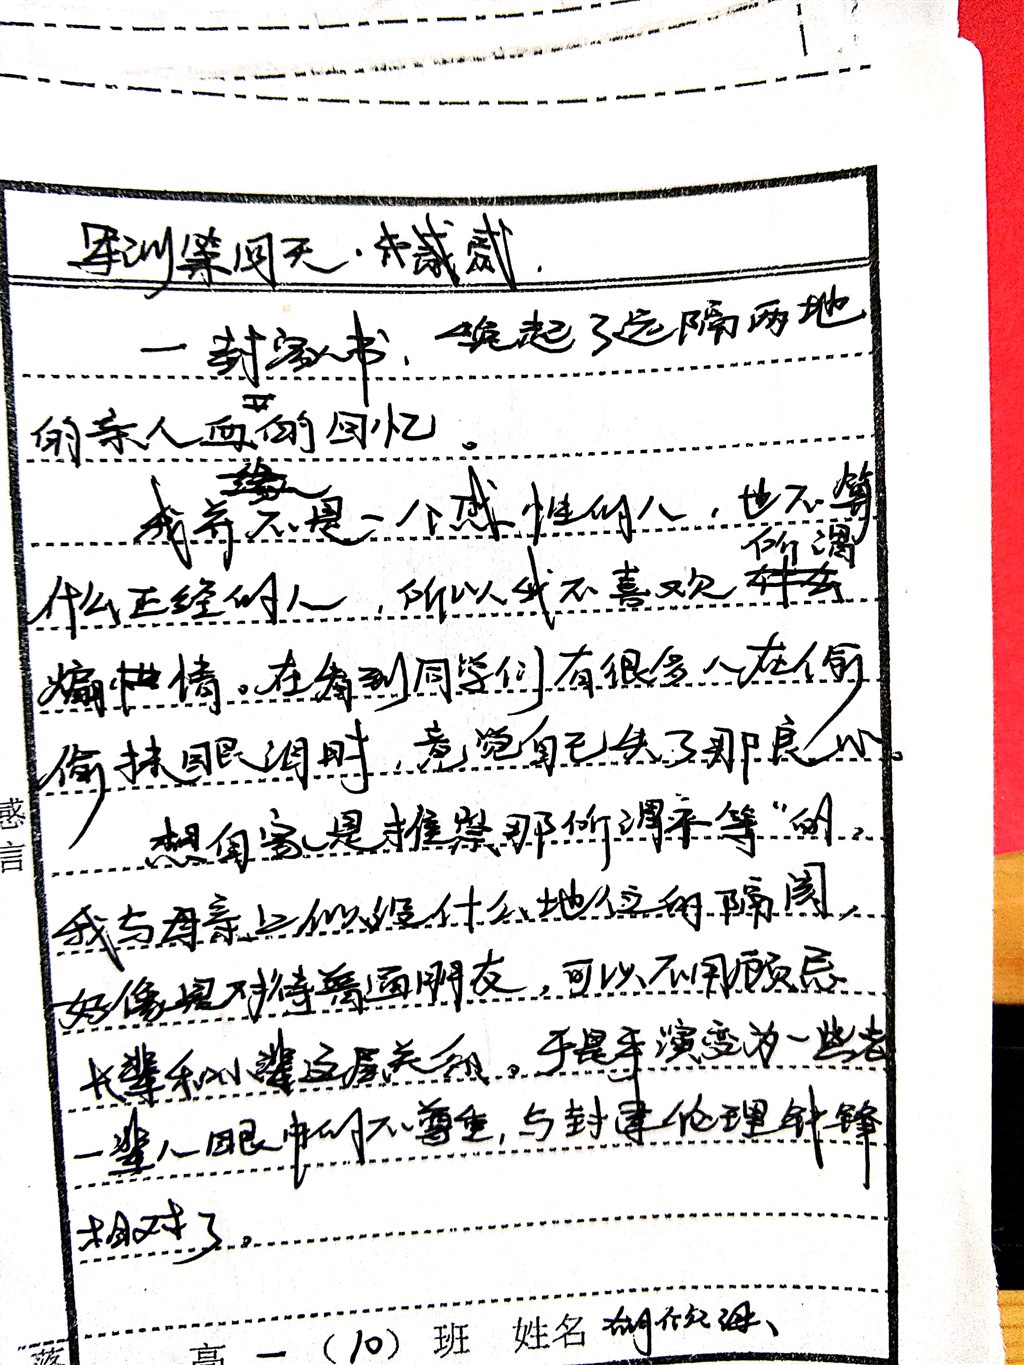 军训第四天·
一封家书，唤起了远隔两地
的亲人血缘的回忆。
我并不是一个感性的人，也不算
什么正经的人，所以我不喜欢所谓
煽情。在看到同学们有很多人在偷
偷抹眼泪时，竟觉自己失了那良心。
想自家是推崇那所谓平等"的，
我与母亲之似没什么地位的隔阂，
好像是对待普通朋友，可以不用顾忌
长辈和小辈这层关系。于是乎演变为一些老
一辈人眼中的不尊重，与封建伦理针锋
相对了。
感
言
高一（10）班 姓名
落